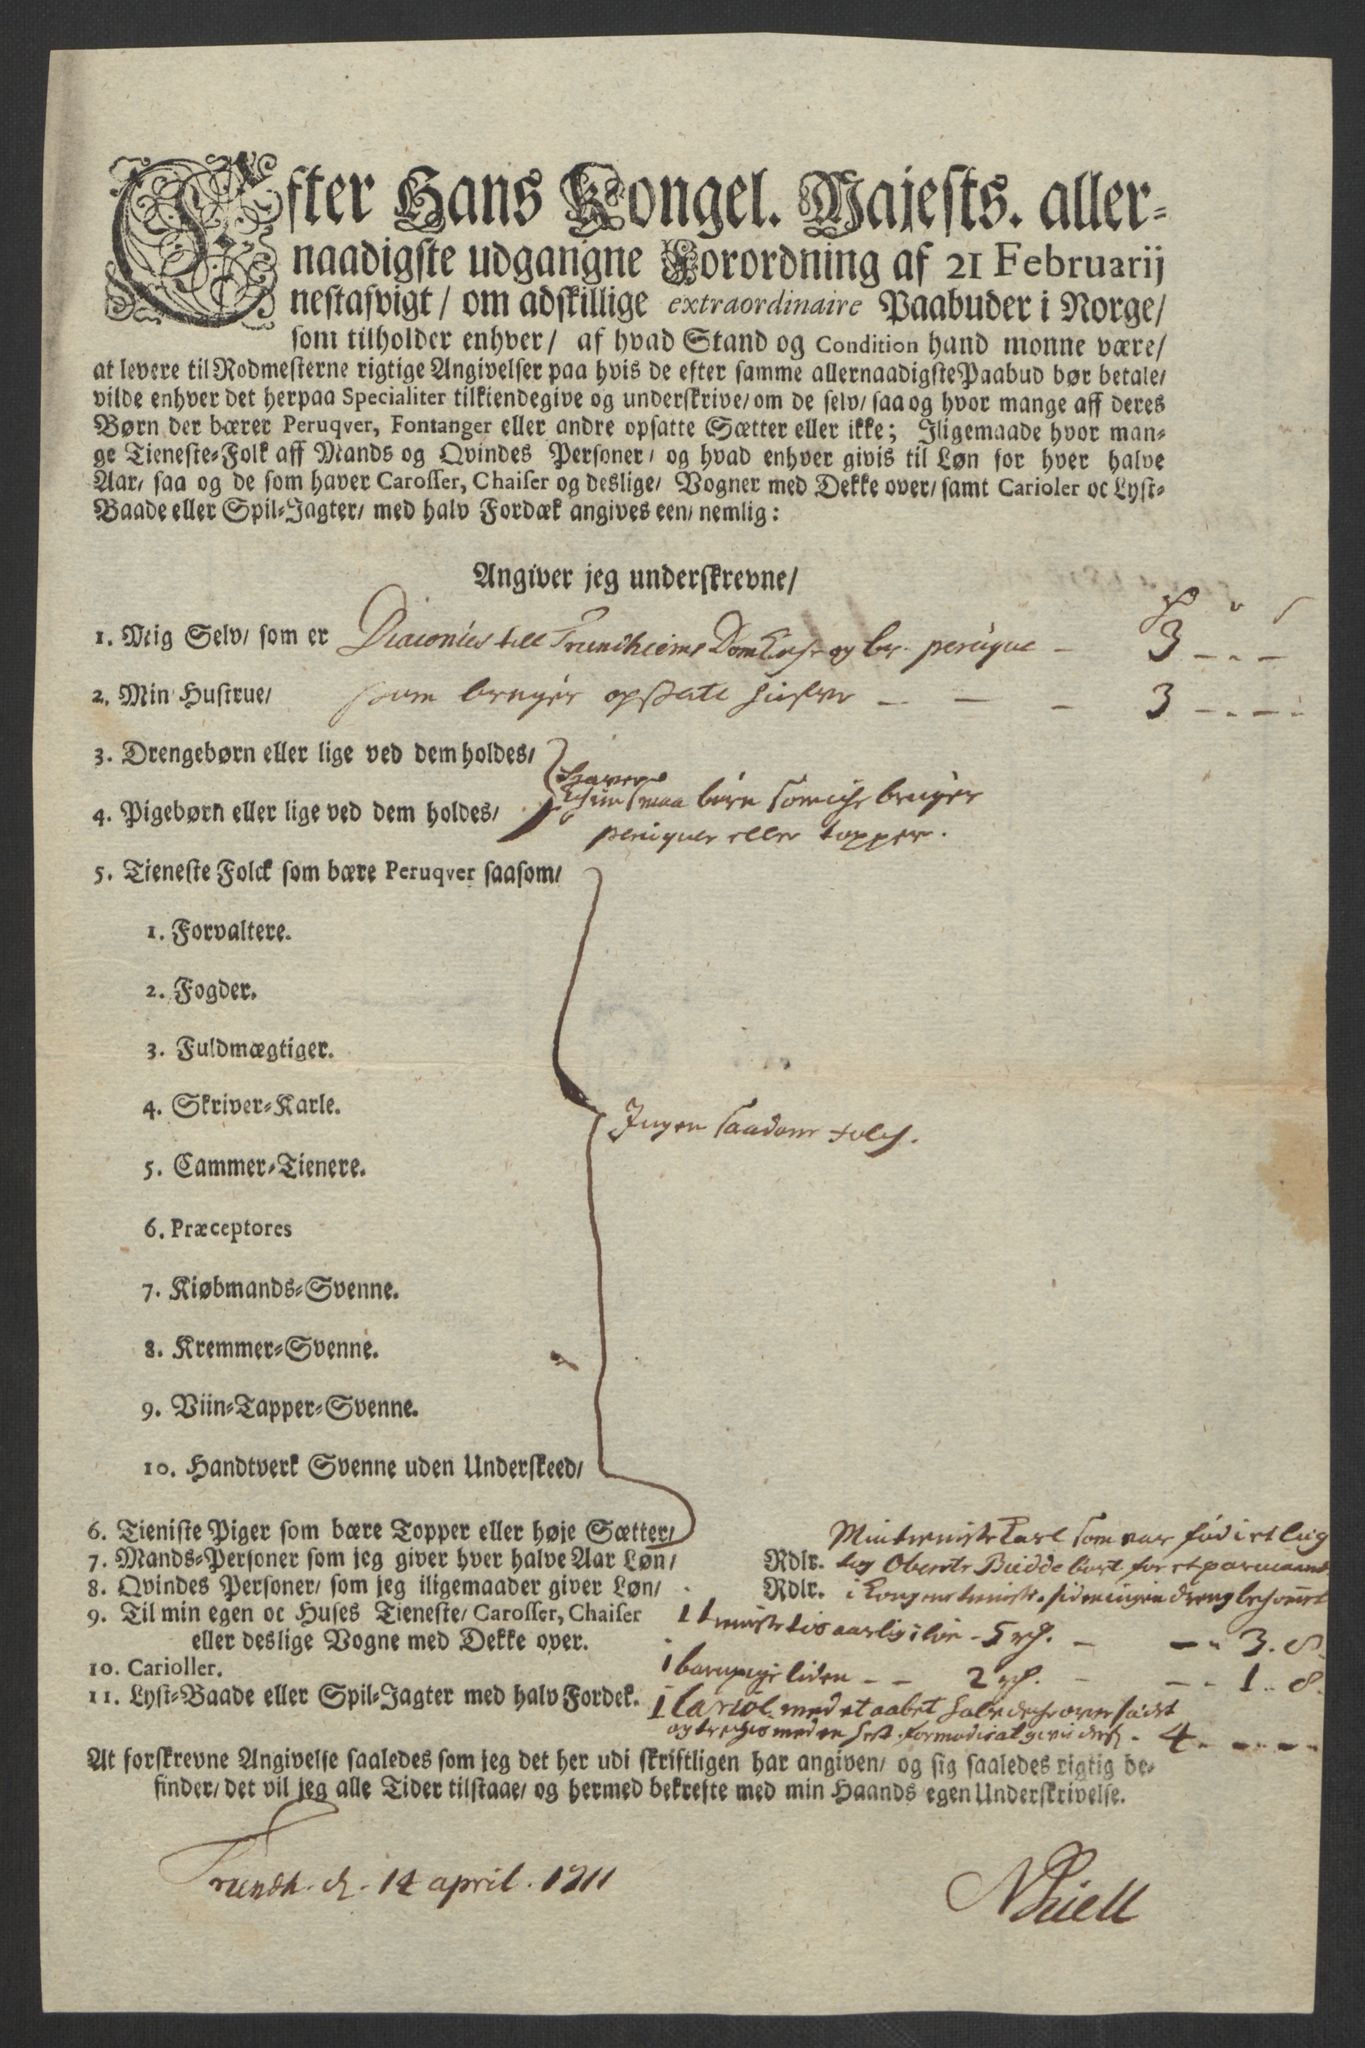 Efter Hans Kongel. Majests. aller-
naadigste udgangne Forordning af 21 Februarij
nestafvigt/ om adskillige extraordinaire Paabuder i Norge/
som tilholder enhver/ af hvad Stand og Condition hand monne være/
at levere til Rodmesterne rigtige Angivelser paa hvis de efter samme allernaadigste Paabud bør betale/
vilde enhver det herpaa Specialiter tilkiendegive og underskrive/ om de selv/ saa og hvor mange aff deres
Børn der bærer Peruqver, Fontanger eller andre opsatte Sætter eller ikke; Iligemaade hvor man-
ge Tieneste-Folk aff Mands og Qvindes Personer/ og hvad enhver givis til Løn for hver halve
Aar/ saa og de som haver Carosser, Chaiser og deslige/ Vogner med Dekke over/ samt Carioler oc Lyst-
Baade eller Spil-Jagter/ med halv Fordæk angives een/ nemlig:
Angiver jeg underskrevne/
1. Mig Selv/ som er Diaconus till Trundhiems Dom og perúque - 3 - - -
2. Min Hustrue/ som bruger opsatte - - - 3 - - -
3. Drengebørn eller lige ved dem holdes/
4. Pigebørn eller lige ved dem holdes/ smaa børn som iche bruger
perúquer eller topper.
5. Tieneste Folck som bære Peruqver saasom/
1. Forvaltere.
2. Fogder.
3. Fuldmægtiger.
4. Skriver-Karle.
Ingen saadane folch.
5. Cammer-Tienere.
6. Præceptores
7. Kiøbmands-Svenne.
8. Kremmer-Svenne.
9. Viin-Tapper-Svenne.
10. Handtverk Svenne uden Underskeed/
6. Tieniste Piger som bære Topper eller høje Sætter/ Min tieniste Karl som var
7. Mands-Personer som jeg giver hver halve Aar Løn/ Rdlr. tog Oberste Budde bort for et par
8. Qvindes Personer/ som jeg iligemaade giver Løn/ Rdlr. i Kongens tieniste. siden ingen dreng
9. Til min egen oc Huses Tieneste/ Carosser, Chaiser 1 aarlig i løn - 5 - - - 3. 8.
eller deslige Vogne med Dekke over.
10. Carioller. 1 barnepige liden - - 2 - - - 1. 8.
11. Lyst-Baade eller Spil-Jagter med halv Fordek. 1 Cariol. med et aabet
og med en hest. - 4 - - - -
At forskrevne Angivelse saaledes som jeg det her udi skriftligen har angiven/ og sig saaledes rigtig be-
finder/ det vil jeg alle Tider tilstaae/ og hermed bekrefte med min Haands egen Underskrivelse.
Trundh. d. 14 april. 1711